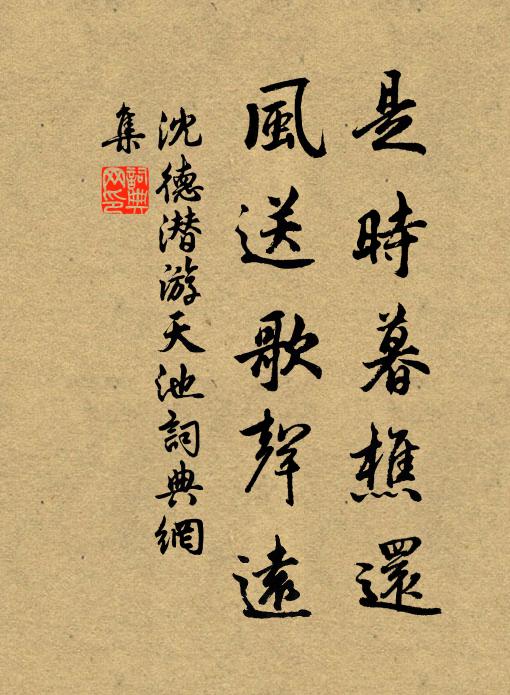 是時暮樵還
風送歌聲遠
沈德潛游天池詞典網
集
詞典
网印